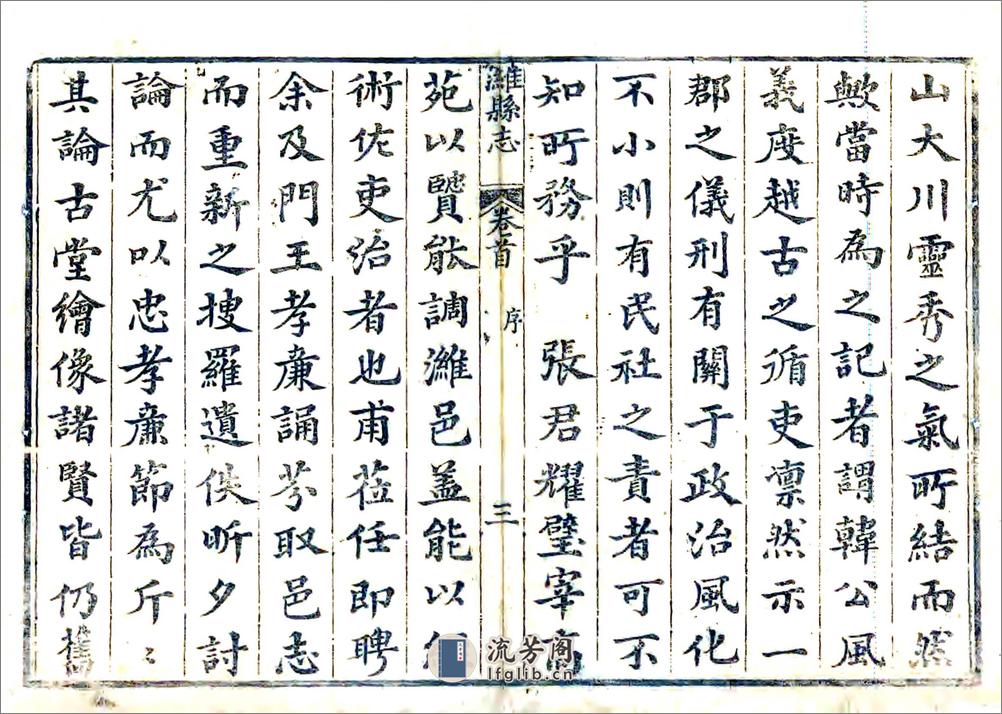 山大川靈秀之氣所結而然
歟當時為之記者謂韓公風
義度越古之循吏凛然示一
郡之儀刑有關于政治風化
不小則有民社之責者可不
知所務乎 張君耀璧宰高
濰縣志 卷首 序 三
苑以贒能調濰邑盖能以
術佐吏治者也甫莅任即聘
余及門王孝亷誦芬取邑志
而重新之搜羅遺佚昕夕討
論而尤以忠孝亷節為斤〻
其論古堂繪像諸賢皆仍舊
流芳阁
lfglib.cn